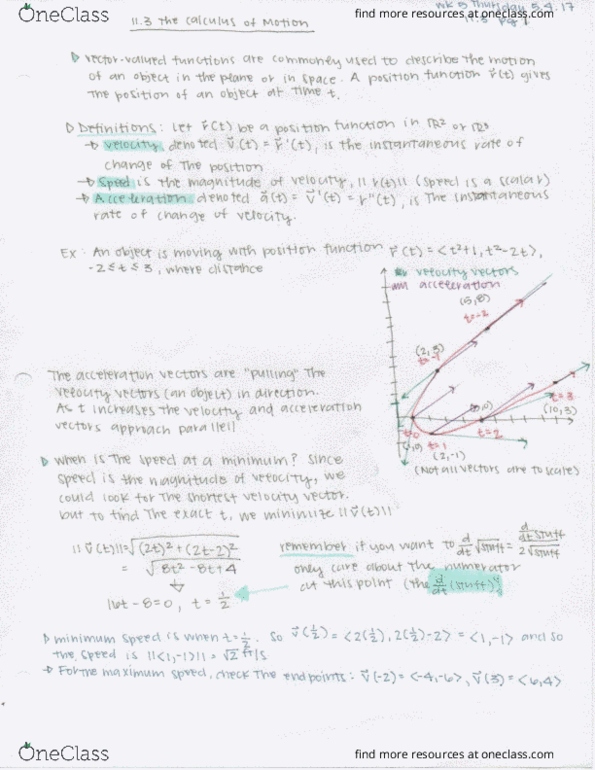 OneClass
find more resources at oneclass.com
wk 5 Thursday 5.4.17
11.3 pg 1
11.3 The Calculus of Motion
vector-valued functions are commonly used to describe the motion
of an object in the plane or in space. A position function r⃗(t) gives
the position of an object at time t.
Definitions: Let r⃗(t) be a position function in ℝ² or ℝ³
→ velocity, denoted v⃗(t) = r⃗'(t), is the instantaneous rate of
change of the position
→ Speed is the magnitude of velocity, ||r(t)|| (speed is a scalar)
→ Acceleration, denoted a⃗(t) = v⃗'(t) = r''(t), is the instantaneous
rate of change of velocity.
Ex: An object is moving with position function r⃗(t) = <t²+1, t²-2t>,
-2≤t≤3, where distance
velocity vectors
acceleration
(5,8)
t=-2
(2,3)
t=-1
t=0
(1,0)
t=1
(2,-1)
(5,0)
t=2
t=3
(10,3)
(Not all vectors are to scale)
The acceleration vectors are "pulling" the
velocity vectors (an object) in direction.
As t increases the velocity and acceleration
vectors approach parallel!
When is the speed at a minimum? Since
speed is the magnitude of velocity, we
could look for the shortest velocity vector.
but to find the exact t, we minimize ||v⃗(t)||
||v⃗(t)|| = √(2t)²+(2t-2)²
= √8t²-8t+4
16t-8=0, t=1/2
remember if you want to d/dt √stuff = d/dt stuff / 2√stuff
only care about the numerator
at this point (the d/dt (stuff))
minimum speed is when t=1/2. So v⃗(1/2) = <2(1/2), 2(1/2)-2> = <1,-1> and so
the speed is ||<1,-1>|| = √2 ft/s
→ For the maximum speed, check the endpoints: v⃗(-2) = <-4,-6>, v⃗(3) = <6,4>
OneClass
find more resources at oneclass.com